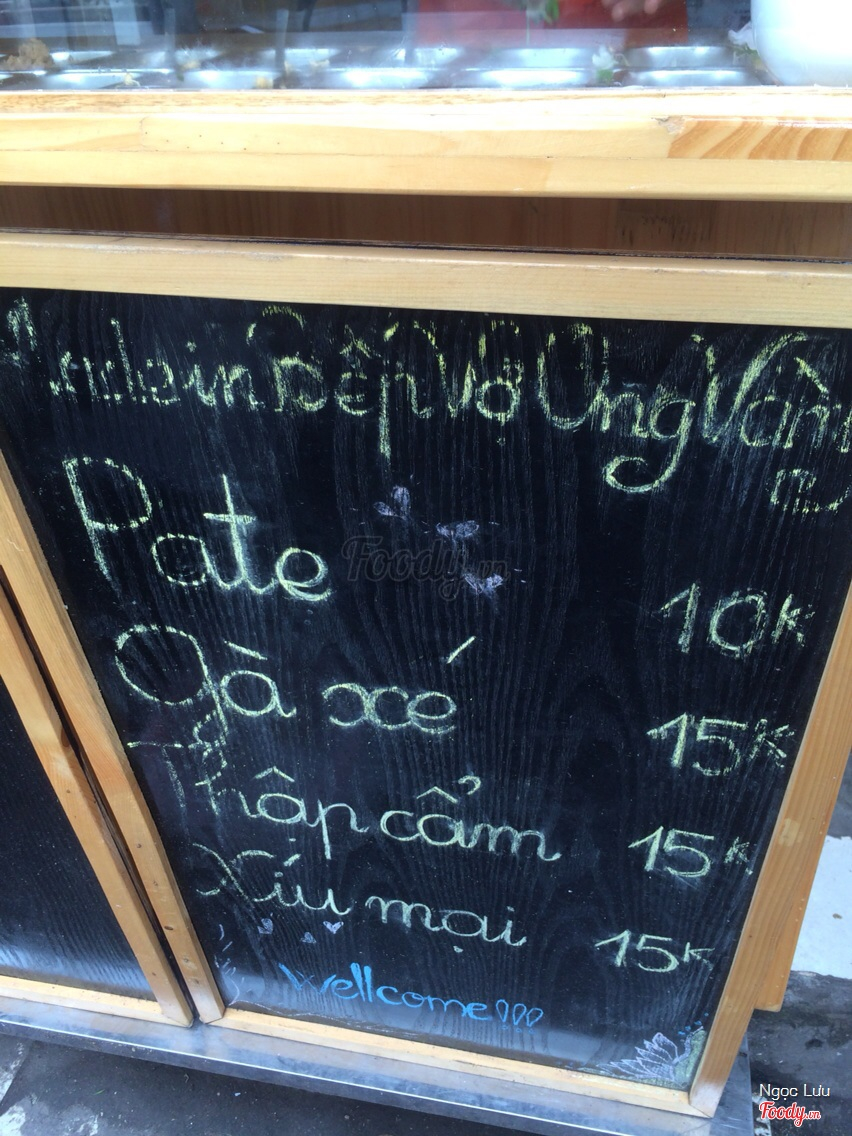 Made in Bếp Vợ Ung Văn
Pate 10K
Foody.vn
Gà xé 15K
Thập cẩm 15K
Xíu mại 15K
Wellcome!!!
Ngọc Lưu
Foody.vn